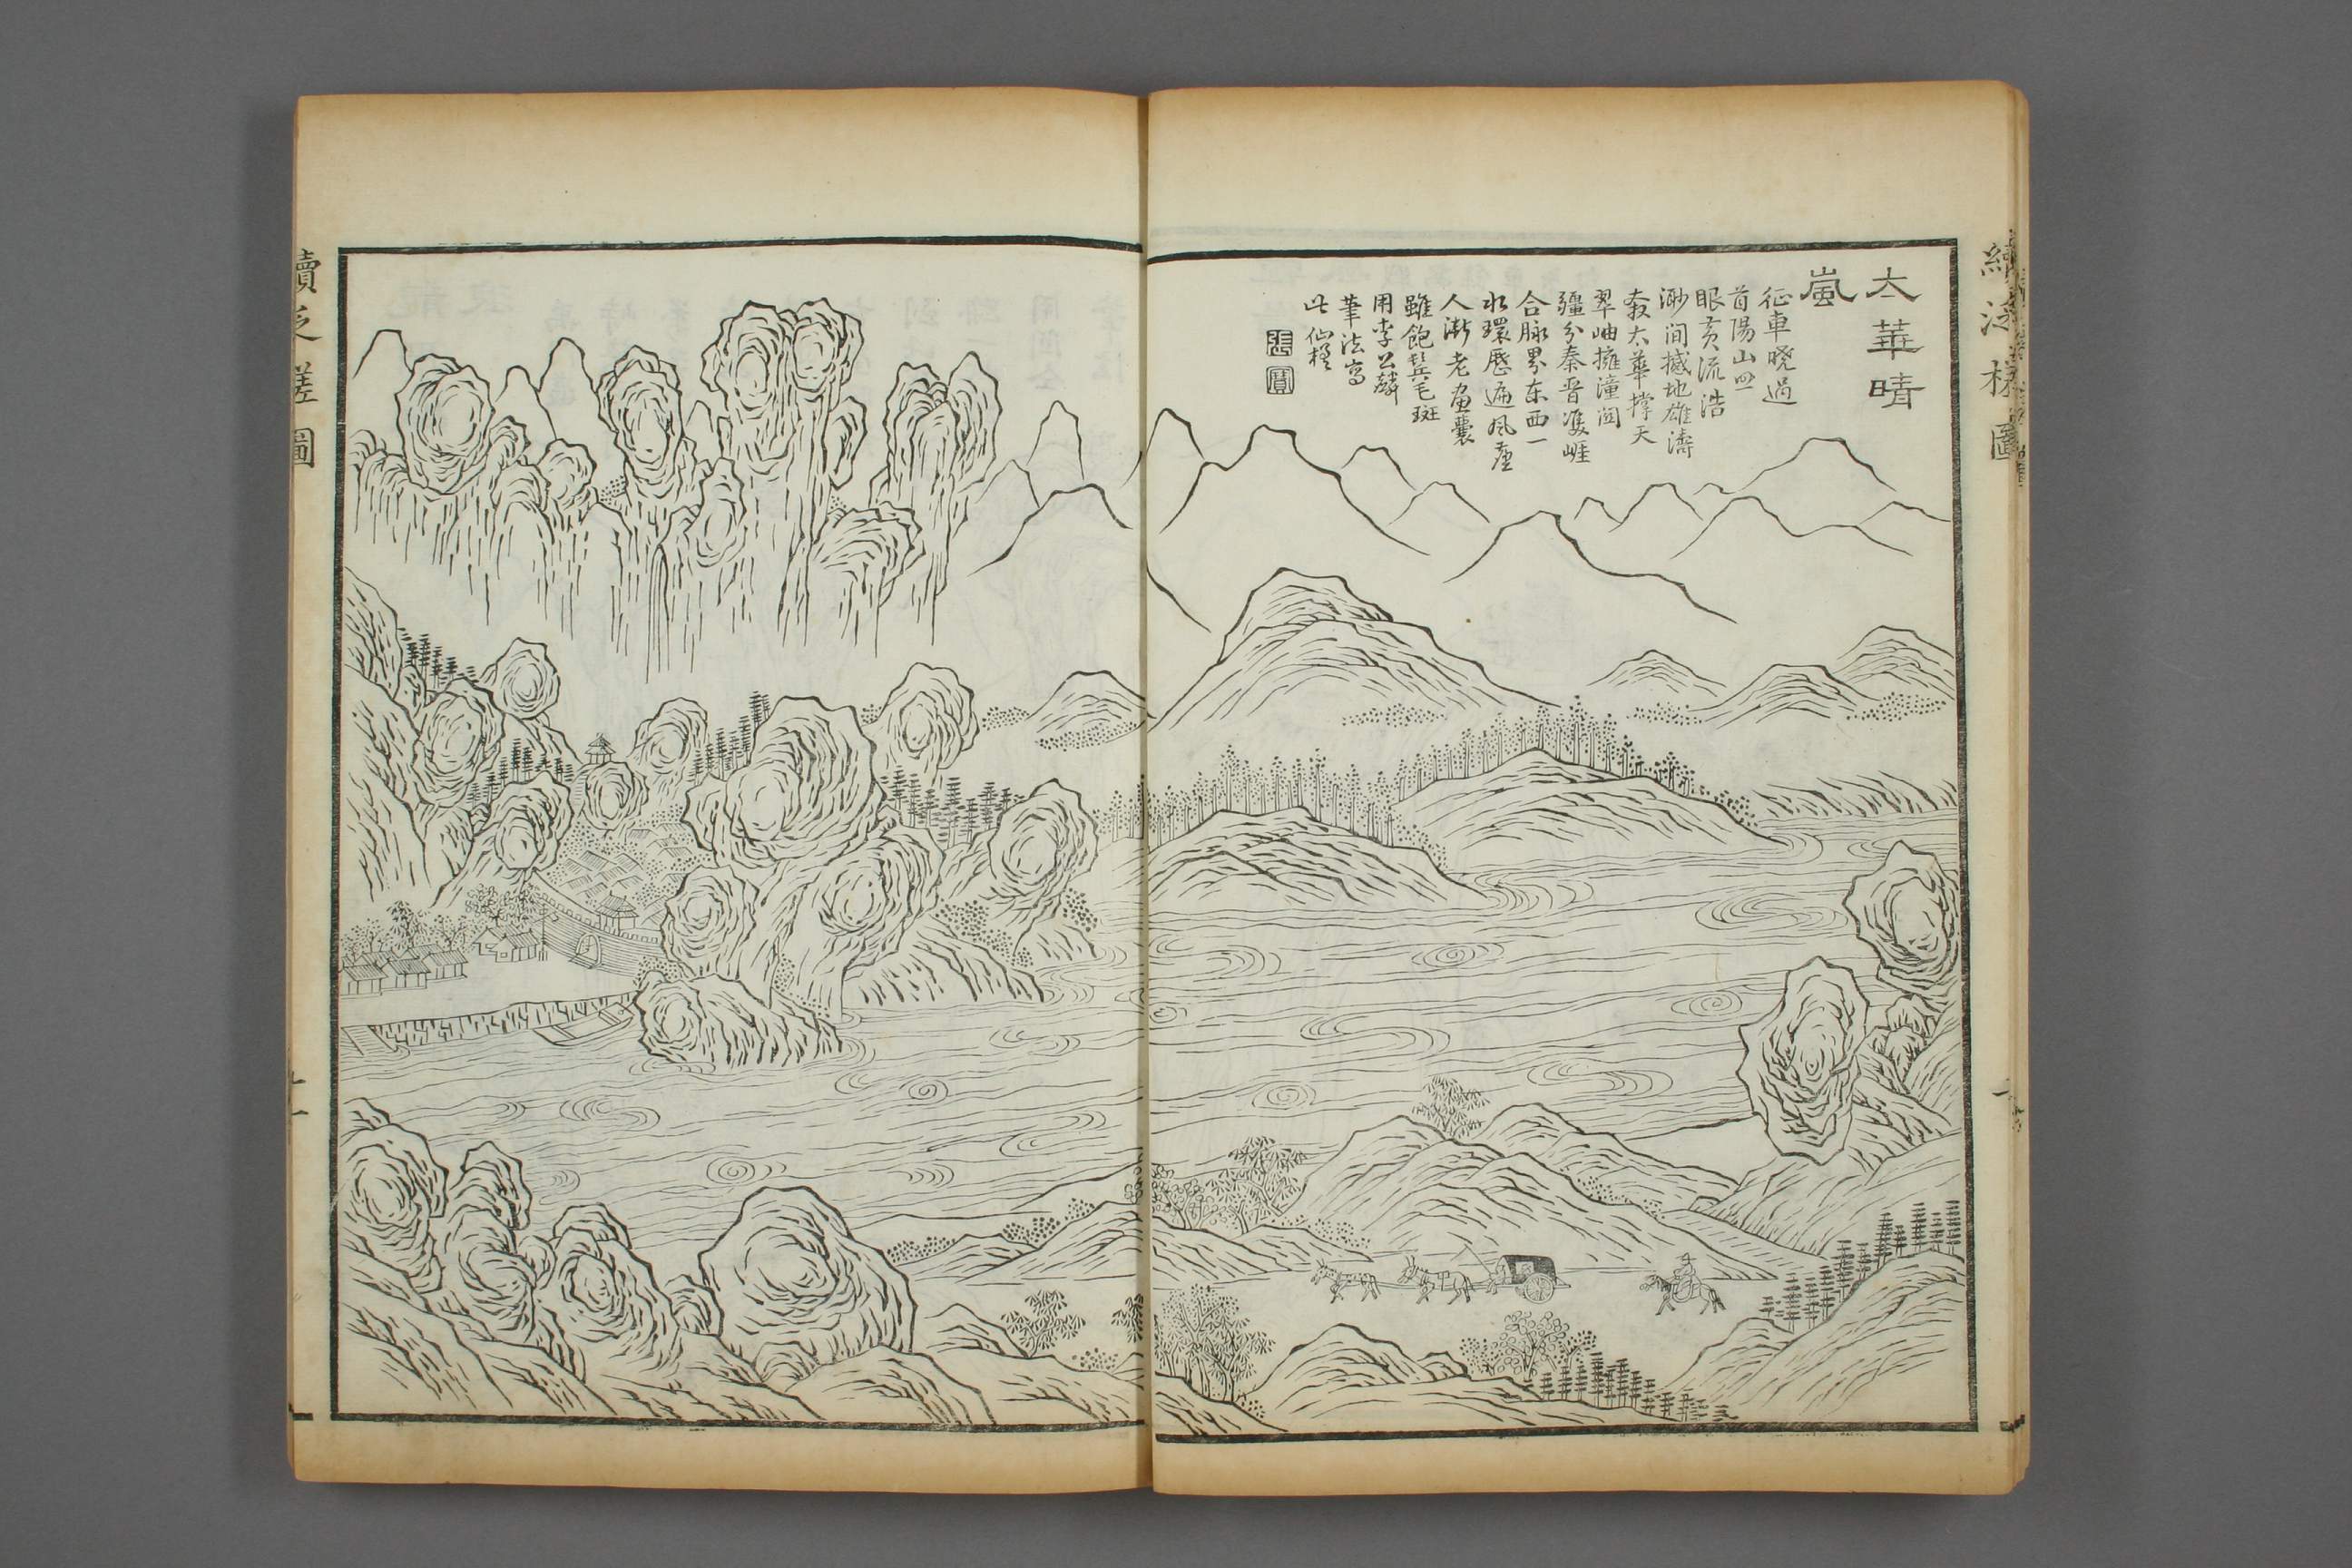 續泛槎圖
太華晴
嵐
征車曉過
首陽山
眼黃流浩
渺間撼地雄濤
太華撐天
翠岫擁潼關
疆分秦晉雙崖
合脉界东西一
水環歷遍風塵
人漸老畫囊
雖飽鬂毛斑
用李公麟
筆法寫
此仙槎
張
寶
續泛槎圖
十一